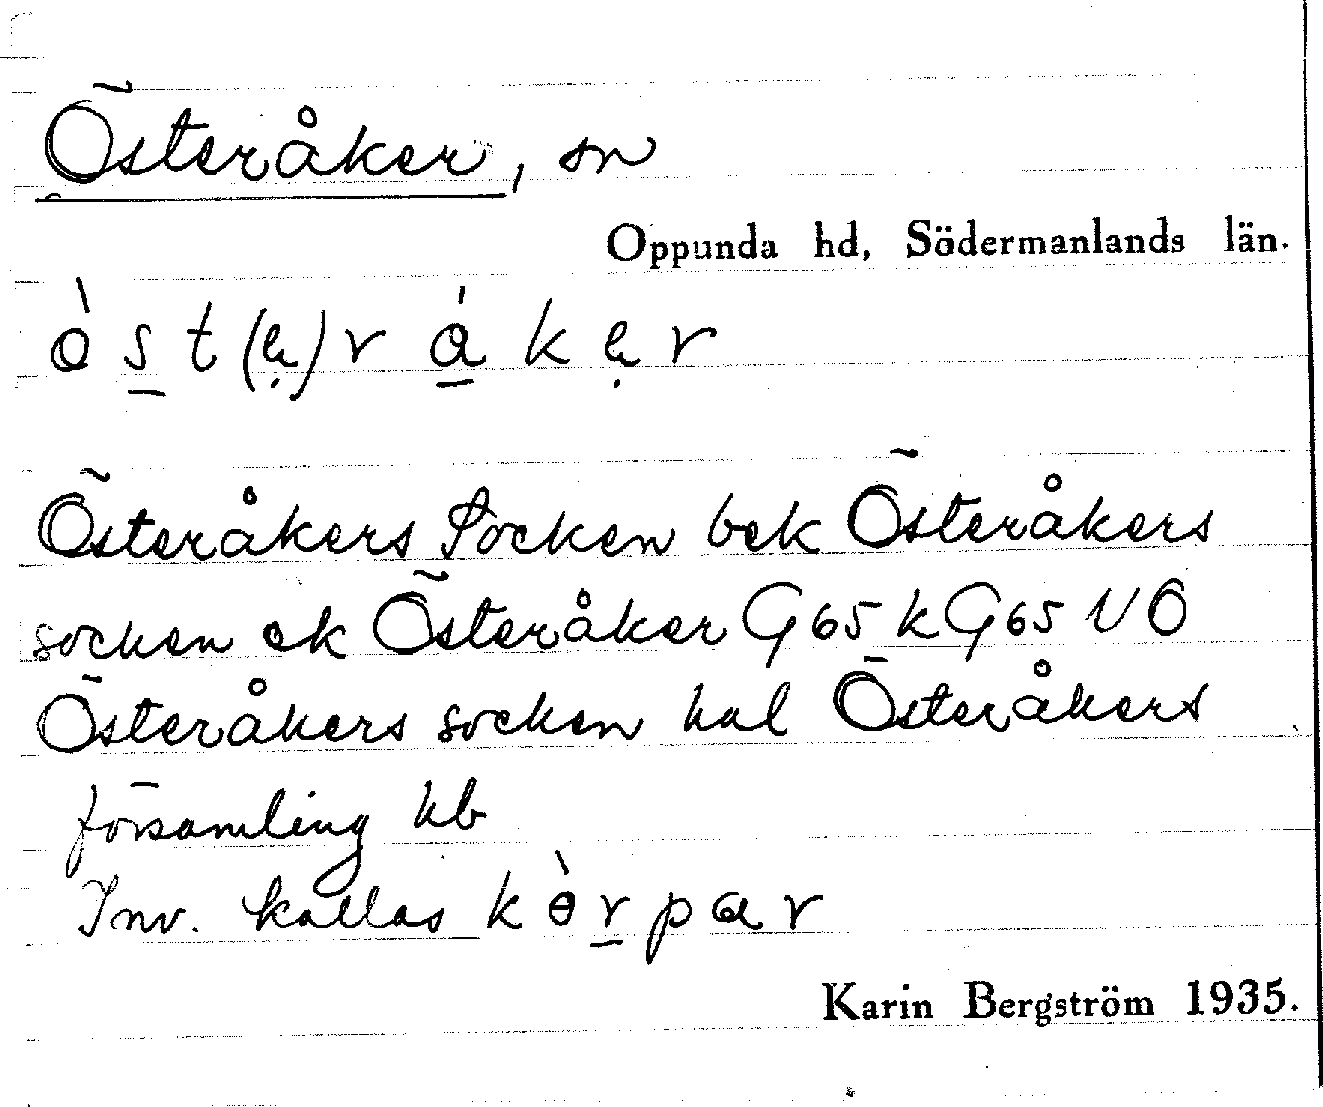 Österåker, sn
Oppunda hd, Södermanlands län.
ò s t (ə) r á k ə r
Österåkers Socken bek Österåkers
socken ek Österåker G65 k G65 VÖ
Österåkers socken hal Österåkers
församling kb
Inv. kallas k ò r p a r
Karin Bergström 1935.